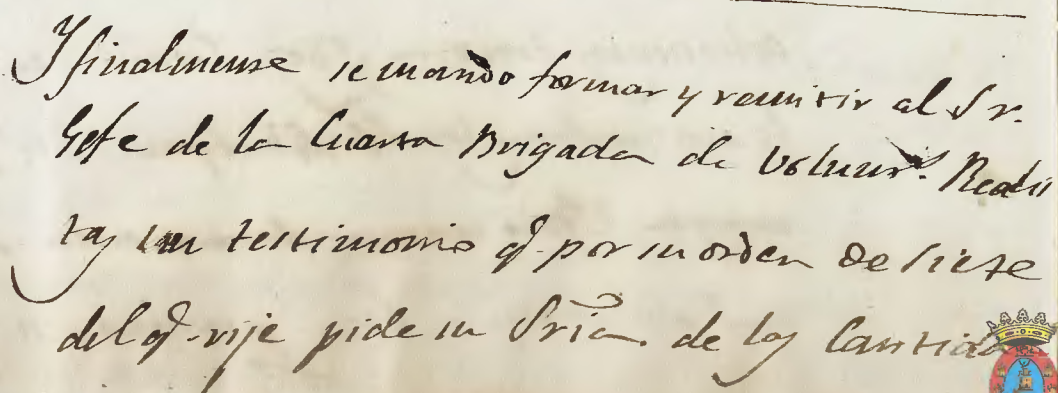 Y finalmente se mando formar y remitir al Sr.
Gefe de la Cuarta Brigada de Volunts. Realis
tas un testimonio q.e por su orden de siete
del q.e rije pide su Sria. de las Cantida